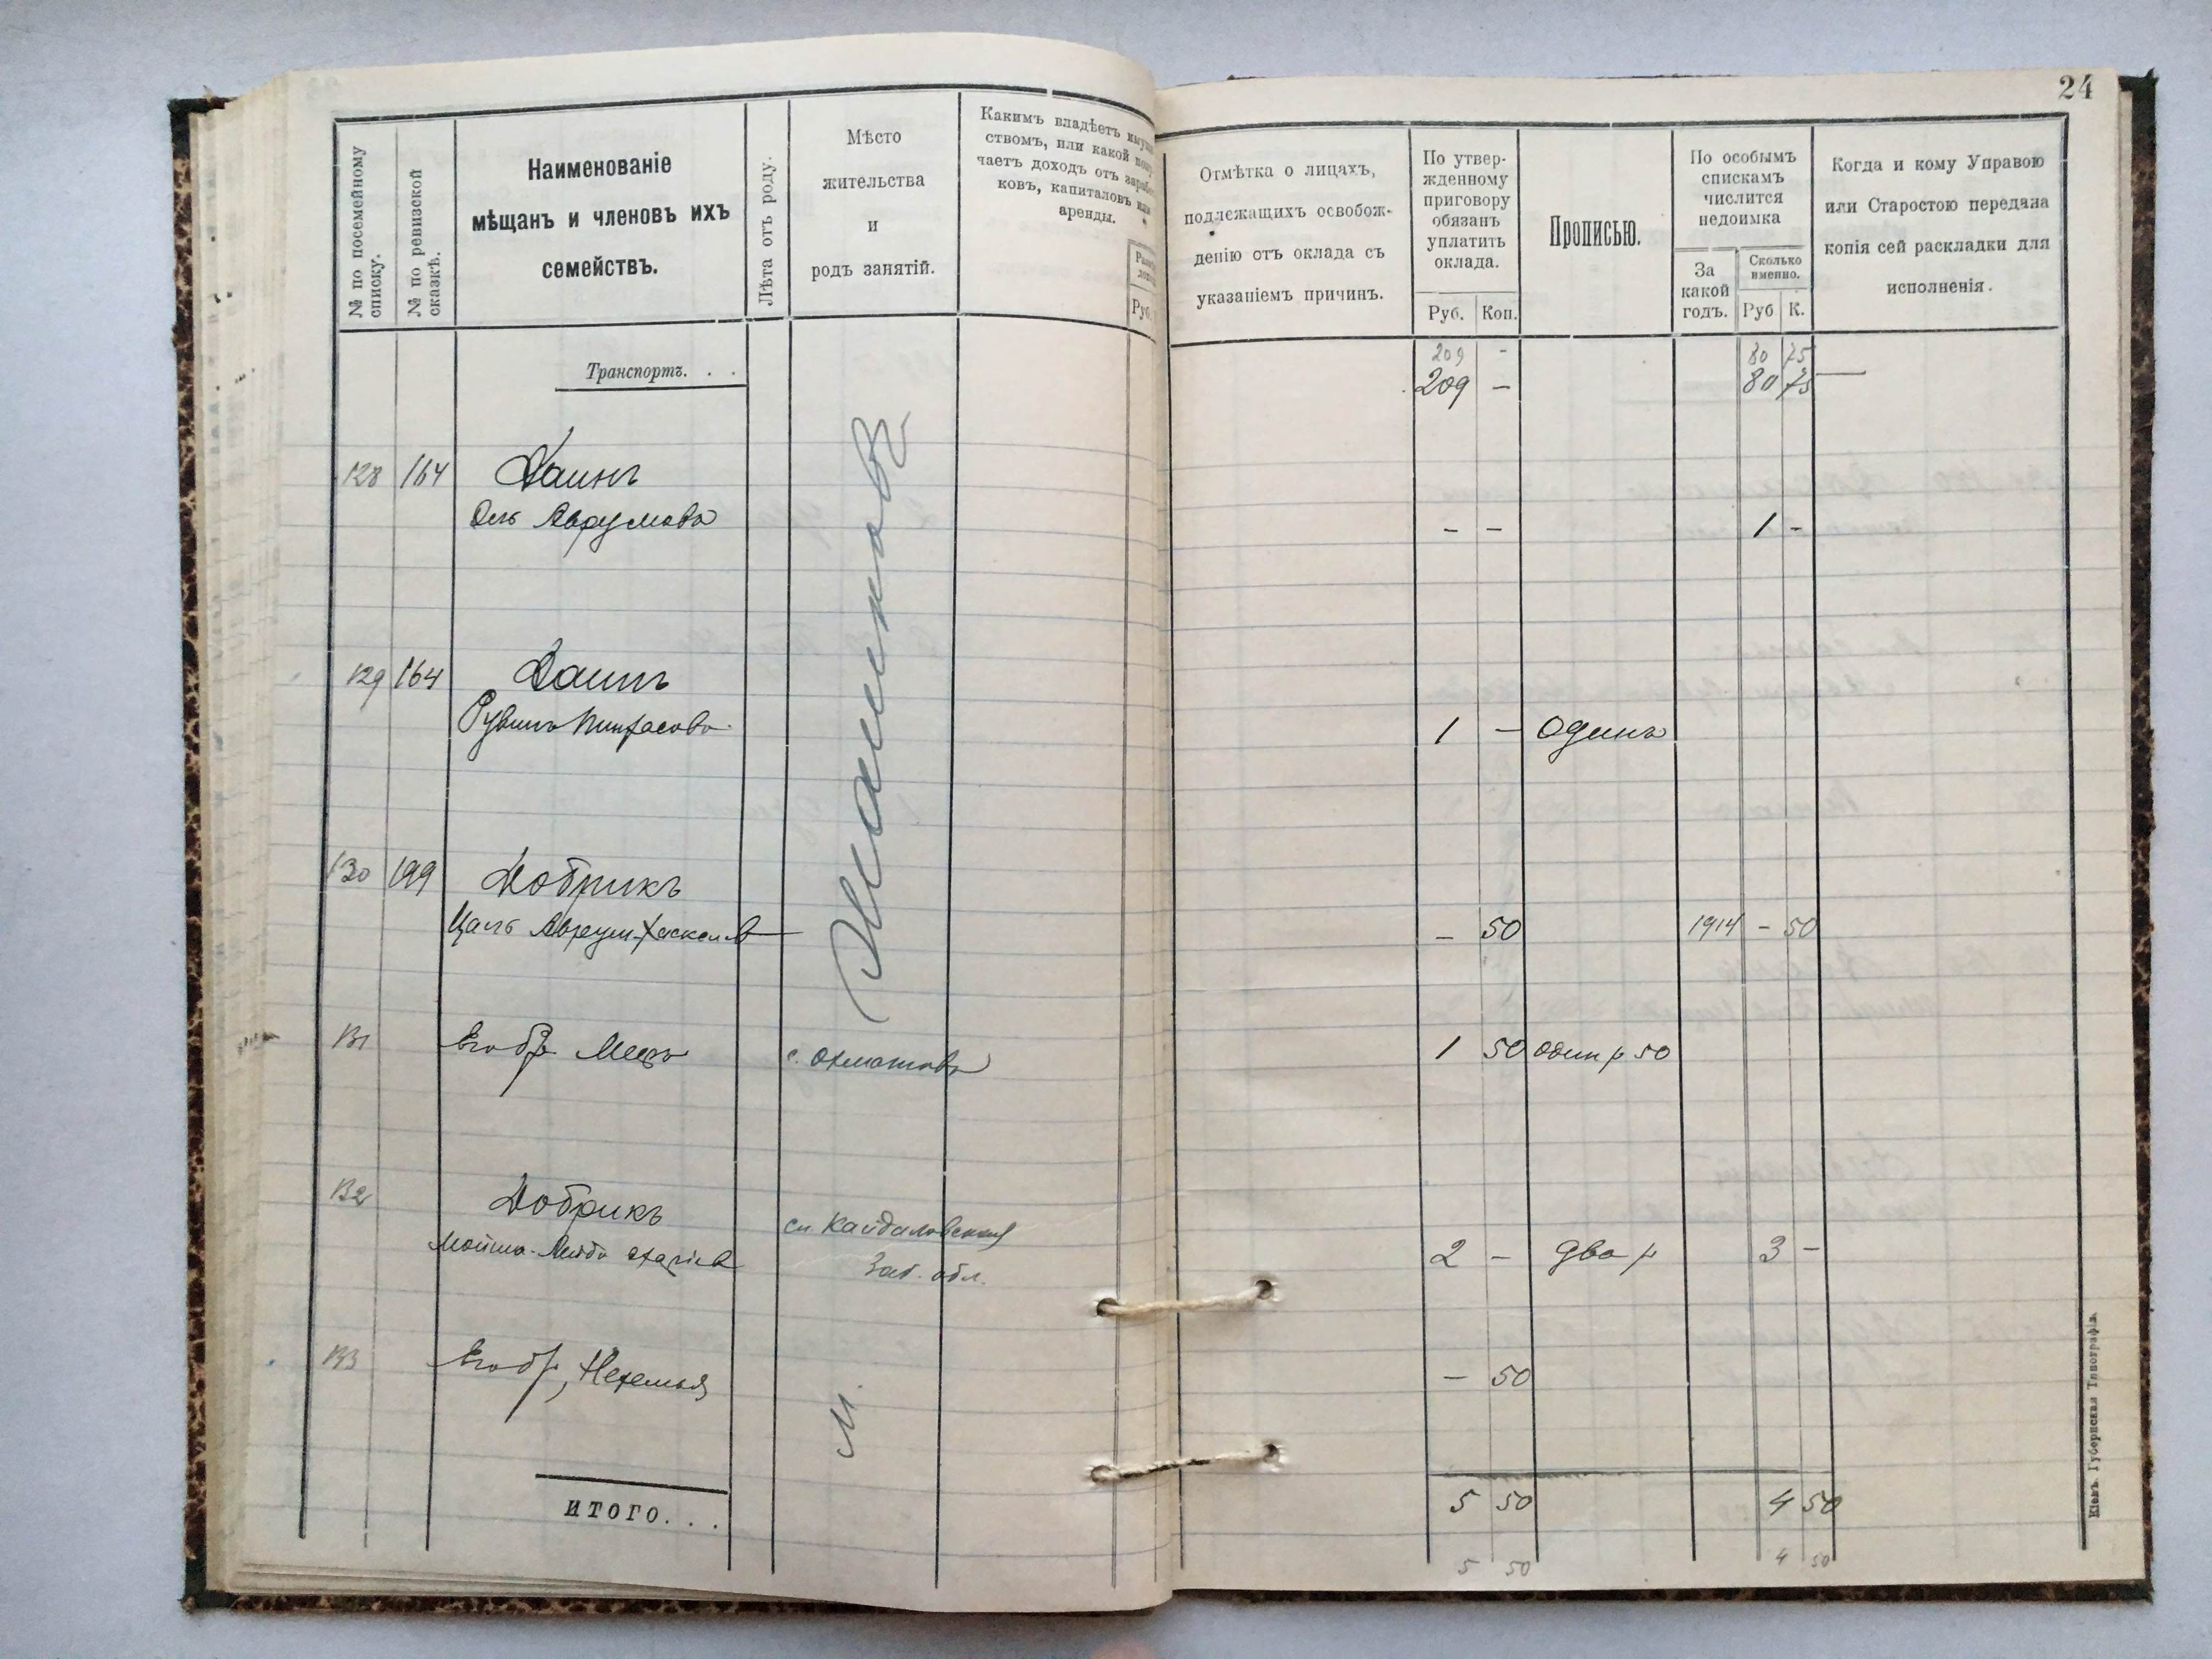 24
№ по посемейному списку.
№ по ревизской сказкѣ.
Наименованіе
мѣщанъ и членовъ ихъ
семействъ.
Лѣта отъ роду.
Мѣсто
жительства
и
родъ занятій.
Какимъ владѣетъ
ствомъ, или какой
чаетъ доходъ отъ
ковъ, капиталовъ или
аренды.
Руб.
Отмѣтка о лицахъ,
подлежащихъ освобож-
денію отъ оклада съ
указаніемъ причинъ.
По утвер-
жденному
приговору
обязанъ
уплатить
оклада.
Руб. Коп.
Прописью.
По особымъ
спискамъ
числится
недоимка
За
какой
годъ.
Сколько
именно.
Руб К.
Когда и кому Управою
или Старостою передана
копія сей раскладки для
исполненія.
209 - 80 75
Транспортъ. . .
209 - 80 75
128 164 Даинъ
Авrумовъ - - 1 -
129 164 Даинъ
Рувинъ Пинхасовъ 1 - Одинъ
130 199 Добрикъ
Цаль Аврум-Хаскелев - 50 1914 - 50
131 Его бр с. Охматовъ 1 50 один р 50
132 Добрикъ
ст. Кайдаловская
Мойше-Лейба 2 - два р 3 -
Заб. обл.
133 Его бр, Нехемья - 50
М.
ИТОГО. . .
5 50 4 50
5 50 4 50
Кіевъ. Губернская Типографія.